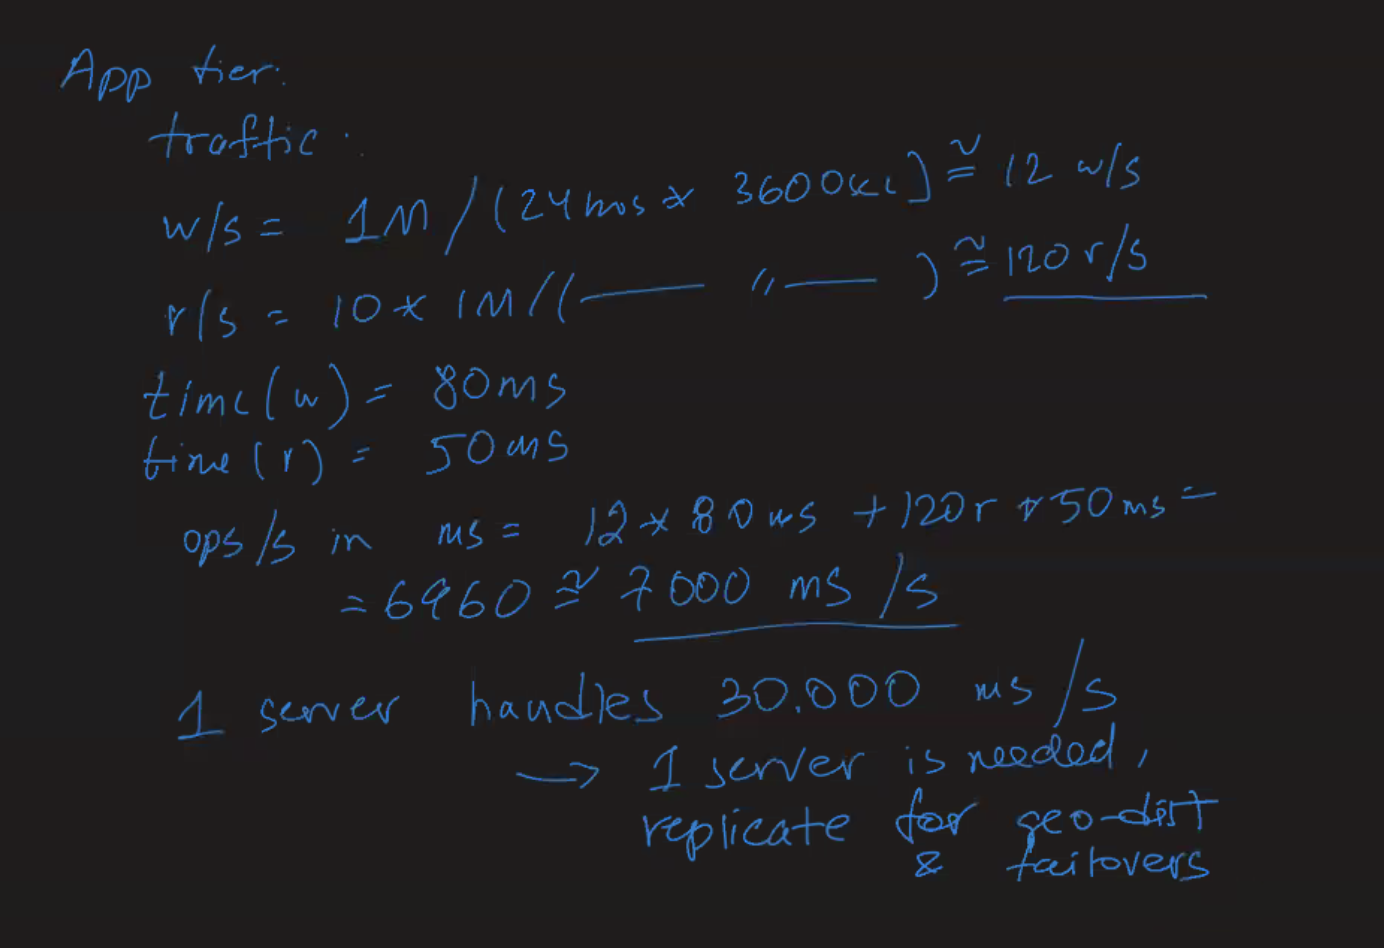 App tier:
traffic:
w/s = 1M/(24hrs * 3600sec) ≅ 12 w/s
r/s = 10 * 1M/(— " —) ≅ 120 r/s
time(w) = 80ms
time(r) = 50ms
ops/s in ms = 12 * 80ms + 120r * 50ms =
= 6960 ≅ 7000 ms/s
1 server handles 30.000 ms/s
→ 1 server is needed,
replicate for geo-dist
& failovers